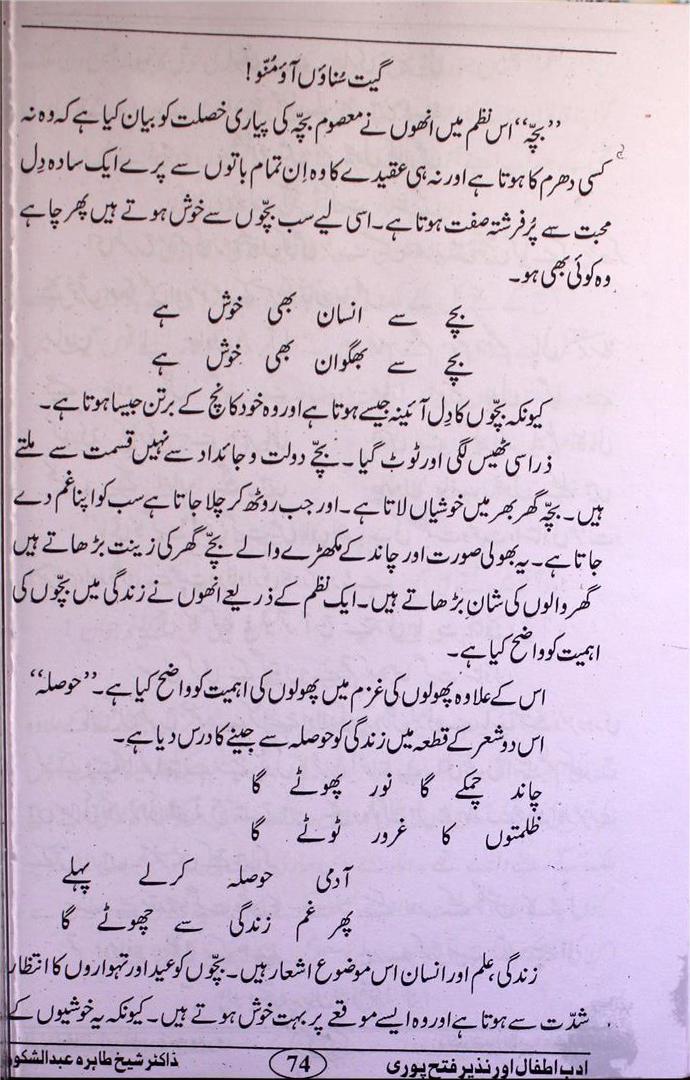 گیت سُناؤں آؤ مُنّو!
”بچّہ“ اس نظم میں انھوں نے معصوم بچّہ کی پیاری خصلت کو بیان کیا ہے کہ وہ نہ
کسی دھرم کا ہوتا ہے اور نہ ہی عقیدے کا وہ اِن تمام باتوں سے پرے ایک سادہ دِل
محبت سے پُر فرشتہ صفت ہوتا ہے۔ اسی لیے سب بچّوں سے خوش ہوتے ہیں پھر چاہے
وہ کوئی بھی ہو۔
بچے سے انسان بھی خوش ہے
بچے سے بھگوان بھی خوش ہے
کیونکہ بچّوں کا دِل آئینہ جیسے ہوتا ہے اور وہ خود کانچ کے برتن جیسا ہوتا ہے۔
ذراسی ٹھیس لگی اور ٹوٹ گیا۔ بچّے دولت و جائداد سے نہیں قسمت سے ملتے
ہیں۔ بچّہ گھر بھر میں خوشیاں لاتا ہے۔ اور جب روٹھ کر چلا جاتا ہے سب کو اپنا غم دے
جاتا ہے۔ یہ بھولی صورت اور چاند کے مکھڑے والے بچّے گھر کی زینت بڑھاتے ہیں
گھر والوں کی شان بڑھاتے ہیں۔ ایک نظم کے ذریعے انھوں نے زندگی میں بچّوں کی
اہمیت کو واضح کیا ہے۔
اس کے علاوہ پھولوں کی غزم میں پھولوں کی اہمیت کو واضح کیا ہے۔ ”حوصلہ“
اس دو شعر کے قطعہ میں زندگی کو حوصلہ سے جینے کا درس دیا ہے۔
چاند چمکے گا نور پھوٹے گا
ظلمتوں کا غرور ٹوٹے گا
آدمی حوصلہ کرلے پہلے
پھر غم زندگی سے چھوٹے گا
زندگی، علم اور انسان اس موضوع اشعار ہیں۔ بچّوں کو عید اور تہواروں کا انتظار
شدّت سے ہوتا ہے اور وہ ایسے موقعے پر بہت خوش ہوتے ہیں۔ کیونکہ یہ خوشیوں کے
ادب اطفال اور نذیر فتح پوری 74 ڈاکٹر شیخ طاہرہ عبدالشکور